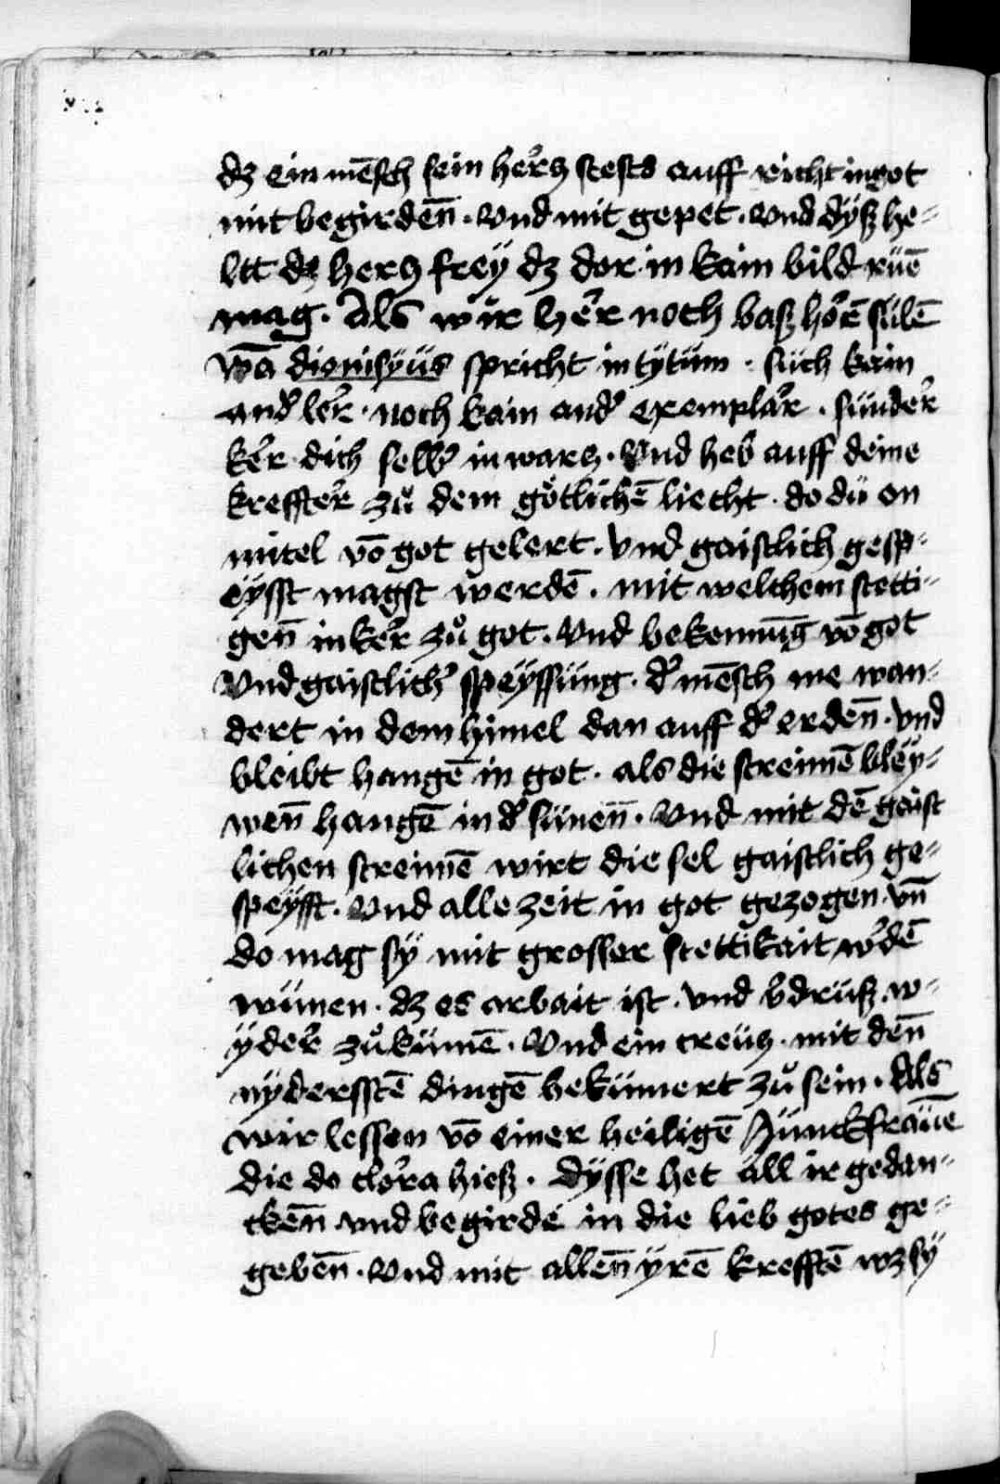 dz ein mēsch sein hercz stets auff richt in got
mit begirdēn · Vnd mit gepet · Vnd dÿsz he-
ltt dz hercz freÿ dz dor in kain bild rüē
mag · Als wir her noch basz hörē sülē
Wā dionisÿüs spricht in tÿtüm · süch kain
and' ler · noch kain and' exemplar · sünder
ker dich selb' in warcz · Vnd heb auff deine
kreffter zů dem götlichē liecht · do dü on
mitel vō got gelert · Vnd gaistlich gesp-
eÿsst magst werdē · mit welchem stetti-
gen̄ inker zů got · Vnd bekennūg vō got
Vnd gaistlich' speÿssüng · d' mēsch me wan-
dert in dem himel dan auff d' erden̄ · vnd
bleibt hangē in got · als die streimē bleÿ-
wen̄ hangē in d' sünen̄ · Vnd mit dē gaist
lichen streimē wirt die sel gaistlich ge-
speÿsst · Vnd alle zeit in got gezogen vn̄
do mag sÿ mit grosser stettikait w'dē
wünen · dz es arbait ist · vnd v'drüsz · w-
ÿder zů kümē · Vnd ein creücz · mit den̄
nÿdersstē dingē bekümert zů sein · Als
wir lessen vō einer heiligē Junckfraüē
die do clora hiesz · dÿsse het all ir gedan-
cken̄ vnd begirde in die lieb gotes ge-
geben̄ · Vnd mit allen̄ ÿrē krefftē wz sÿ